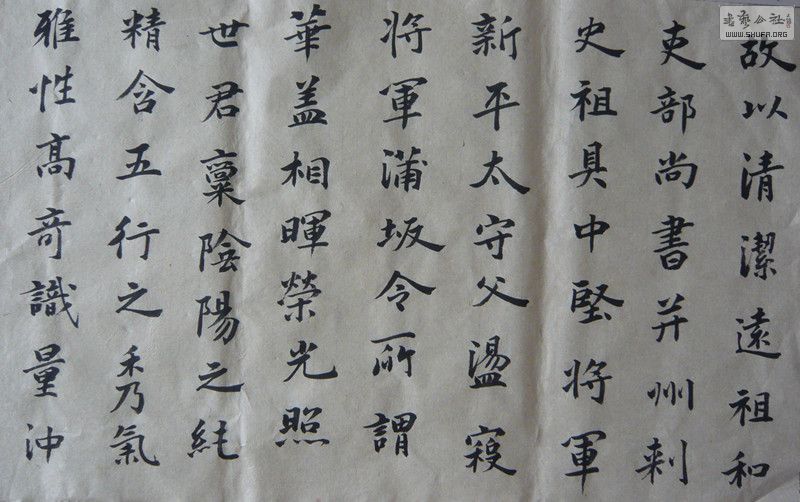 故以清潔遠祖和
吏部尚書并州刺
史祖具中堅將軍
新平太守父盪寇
將軍蒲坂令所謂
華盖相暉榮光照
世君稟陰陽之純
精含五行之秀氣
雅性高奇識量沖
書藝公社
WWW.SHUFA.ORG